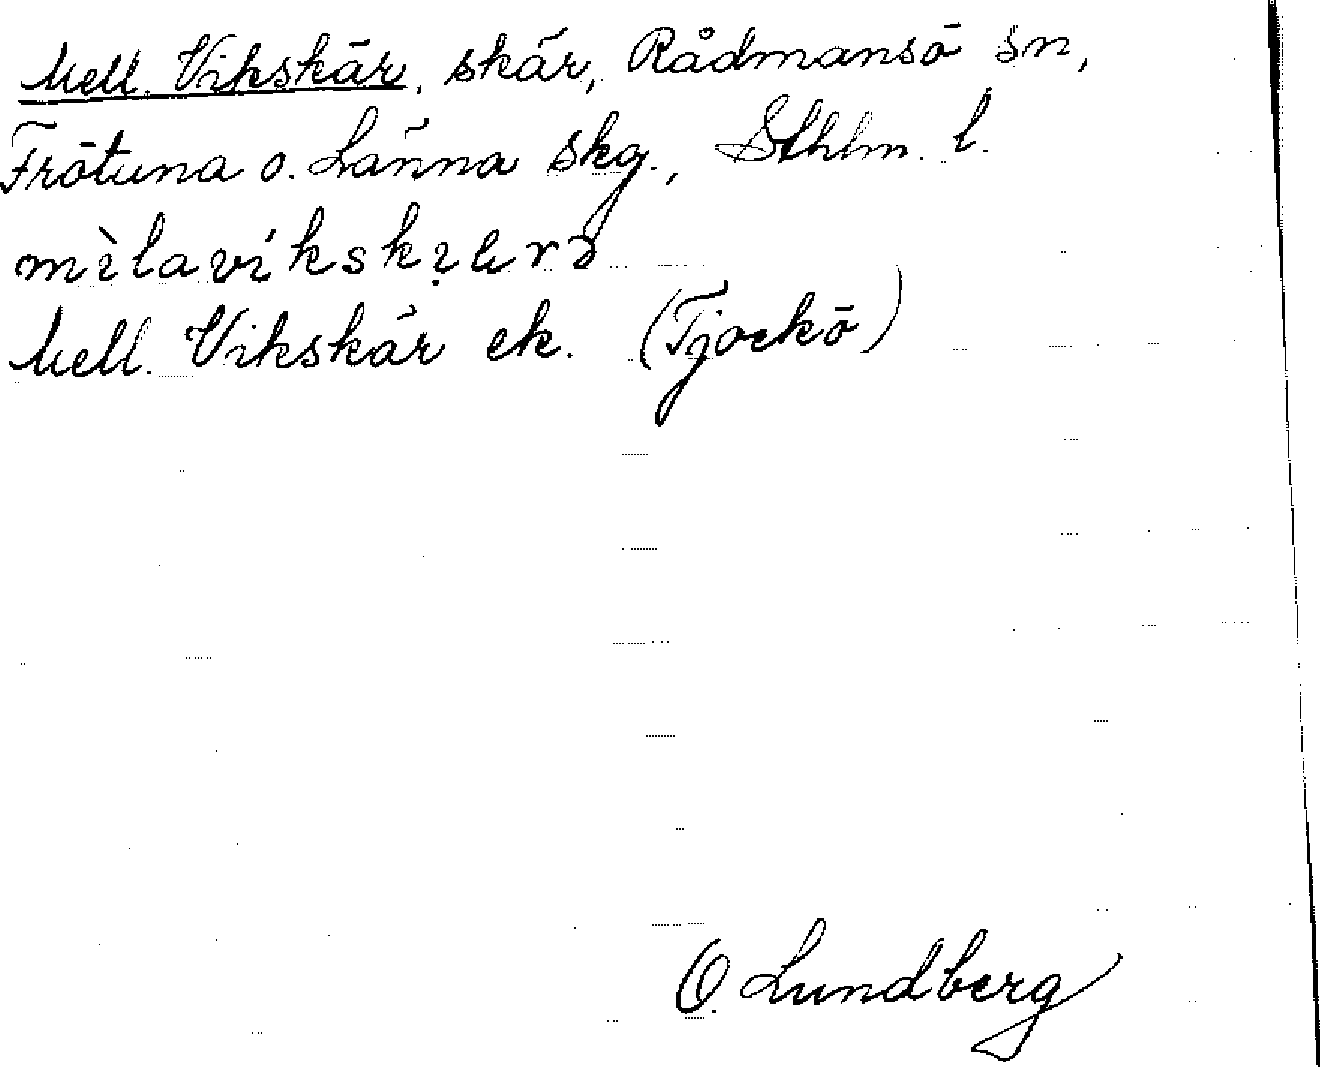 Mell. Vikskär, skär, Rådmansö sn,
Frötuna o. Länna skg., Sthlm. l.
Mell. Vikskär ek. (Tjockö)
O. Lundberg